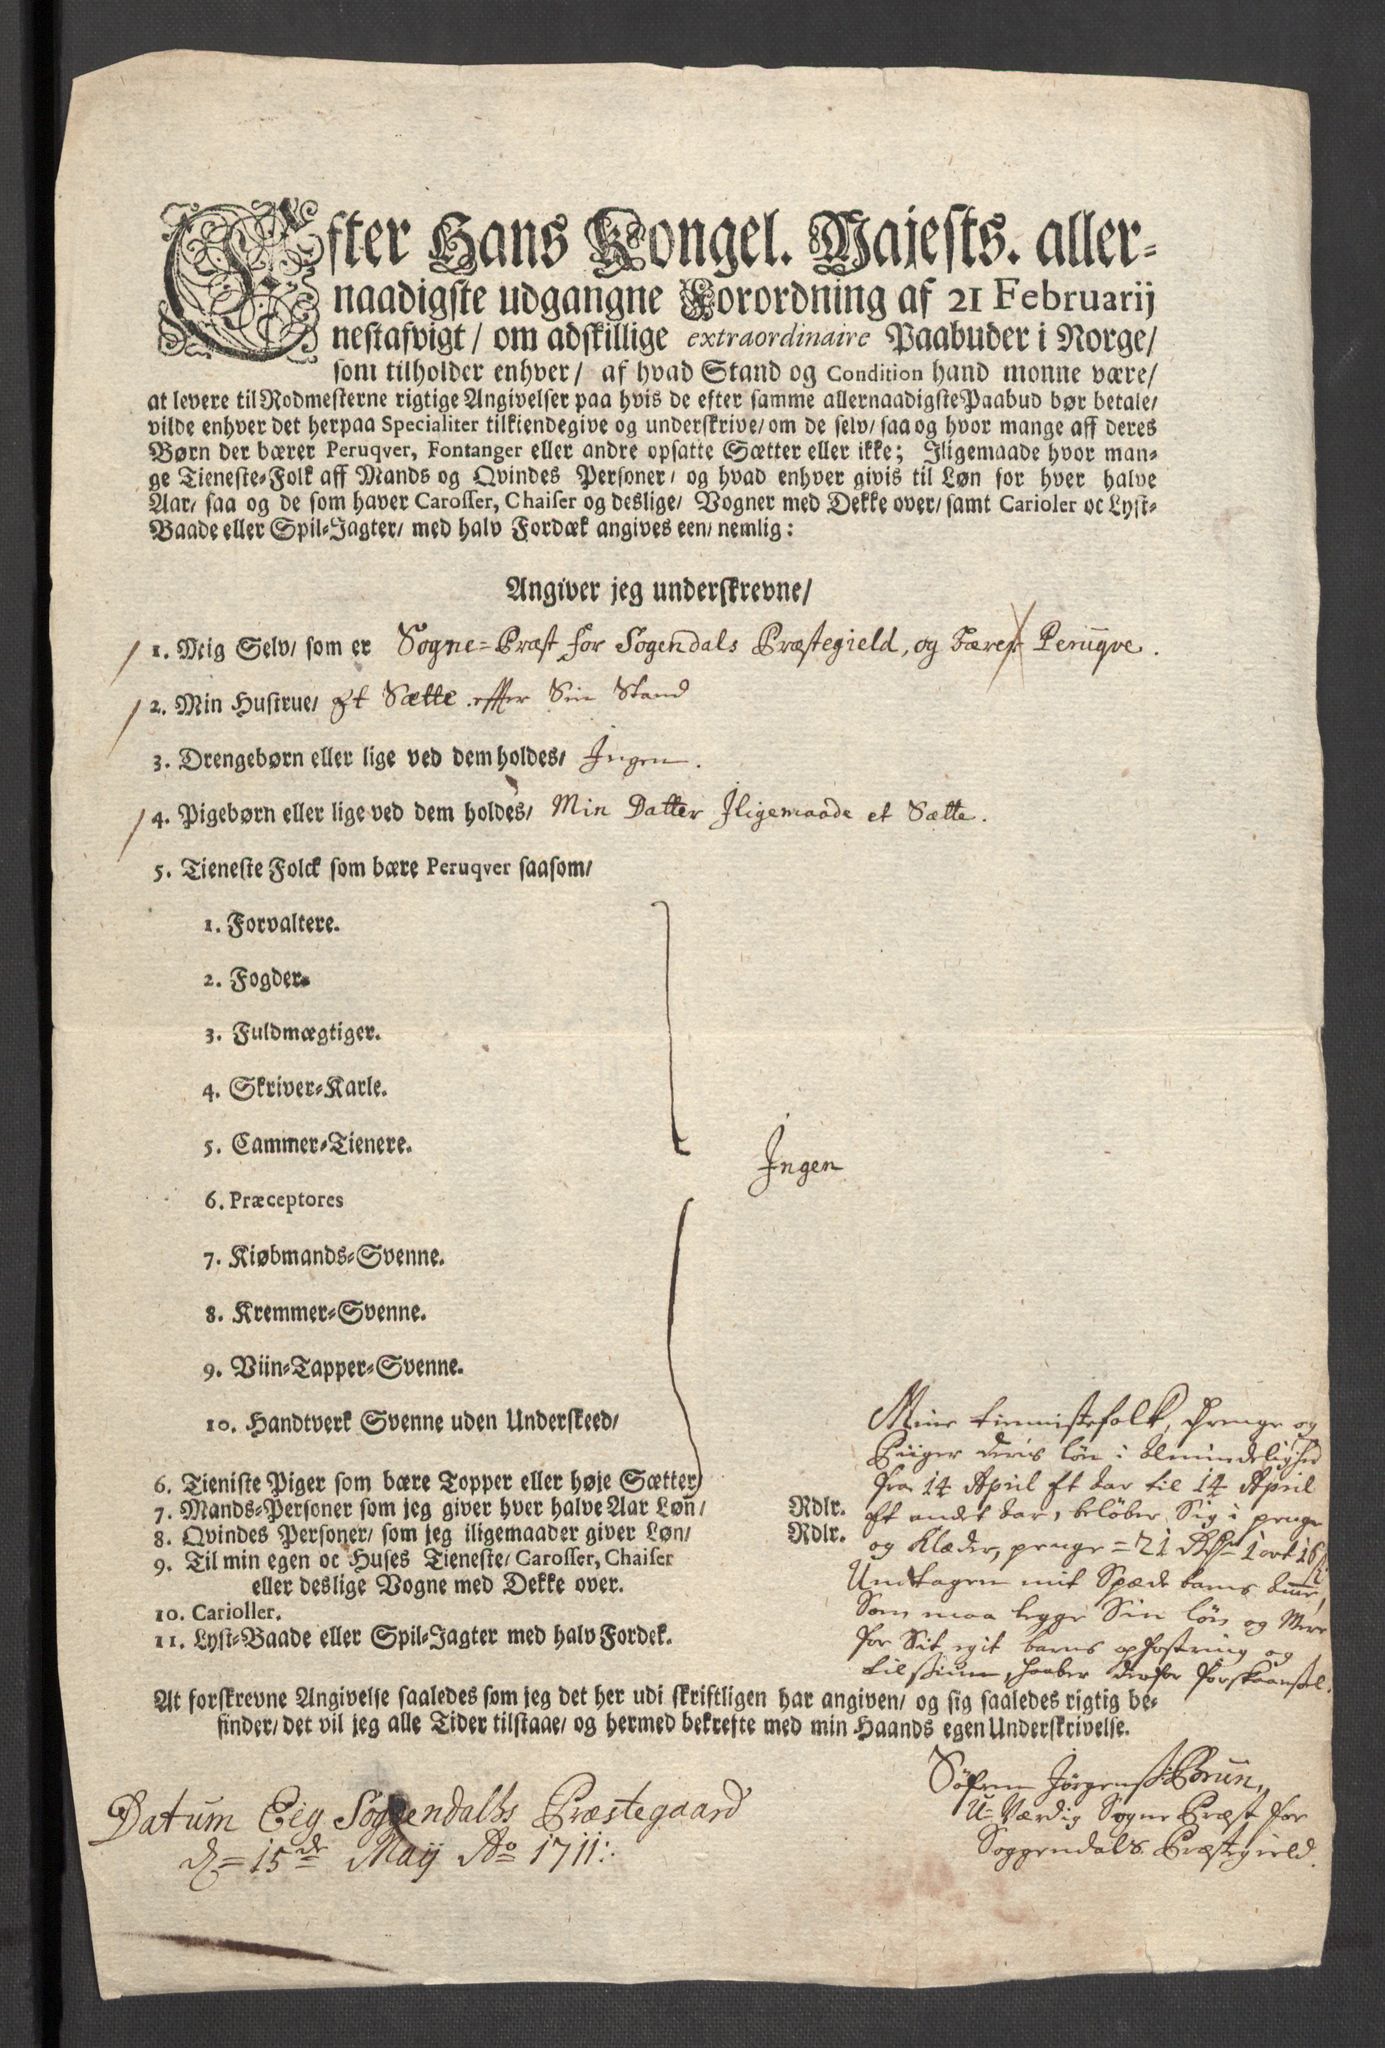 Efter Hans Kongel. Majests. aller-
naadigste udgangne Forordning af 21 Februarij
nestafvigt/ om adskillige extraordinaire Paabuder i Norge/
som tilholder enhver/ af hvad Stand og Condition hand monne være/
at levere til Rodmesterne rigtige Angivelser paa hvis de efter samme allernaadigste Paabud bør betale/
vilde enhver det herpaa Specialiter tilkiendegive og underskrive/ om de selv/ saa og hvor mange aff deres
Børn der bærer Peruqver, Fontanger eller andre opsatte Sætter eller ikke; Iligemaade hvor man-
ge Tieneste-Folk aff Mands og Qvindes Personer/ og hvad enhver givis til Løn for hver halve
Aar/ saa og de som haver Carosser, Chaiser og deslige/ Vogner med Dekke over/ samt Carioler oc Lyst-
Baade eller Spil-Jagter/ med halv Fordæk angives een/ nemlig:
Angiver jeg underskrevne/
1. Mig Selv/ som er Sogne-Præst for Sogendals Præstegield, og bærer Perüqve.
2. Min Hustrue/ Et Sætte effter Sin Stand
3. Drengebørn eller lige ved dem holdes/ Ingen.
4. Pigebørn eller lige ved dem holdes/ Min Datter Iligemaade et Sætte.
5. Tieneste Folck som bære Peruqver saasom/
1. Forvaltere.
2. Fogder.
3. Fuldmægtiger.
4. Skriver-Karle.
5. Cammer-Tienere.
Ingen
6. Præceptores
7. Kiøbmands-Svenne.
8. Kremmer-Svenne.
9. Viin-Tapper-Svenne.
10. Handtverk Svenne uden Underskeed/
6. Tieniste Piger som bære Topper eller høje Sætter/
7. Mands-Personer som jeg giver hver halve Aar Løn/ Rdlr.
8. Qvindes Personer/ som jeg iligemaader giver Løn/ Rdlr.
9. Til min egen oc Huses Tieneste/ Carosser, Chaiser
eller deslige Vogne med Dekke over.
10. Carioller.
11. Lyst-Baade eller Spil-Jagter med halv Fordek.
Mine tiennistefolk, Drenge og
Piiger deris løn i Almindelighed
fra 14 April Et Aar til 14 April
Et andet Aar, beløber Sig i penge
og Klæder, penge = 21 Rdr 1 ort 16 s
Undtagen mit Spæde barns Amme,
Som maa legge Sin løn og Mere
for Sit egit barns opfostring og
tilsiun, haaber derfor forskaansel.
At forskrevne Angivelse saaledes som jeg det her udi skriftligen har angiven/ og sig saaledes rigtig be-
finder/ det vil jeg alle Tider tilstaae/ og hermed bekrefte med min Haands egen Underskrivelse.
Datum Eig Soggendalhs Præstegaard
d = 15de Maij Ao 1711:
Søfren Jørgens: Brun,
U-Værdig Sogne Præst for
Soggendals Præstegield.